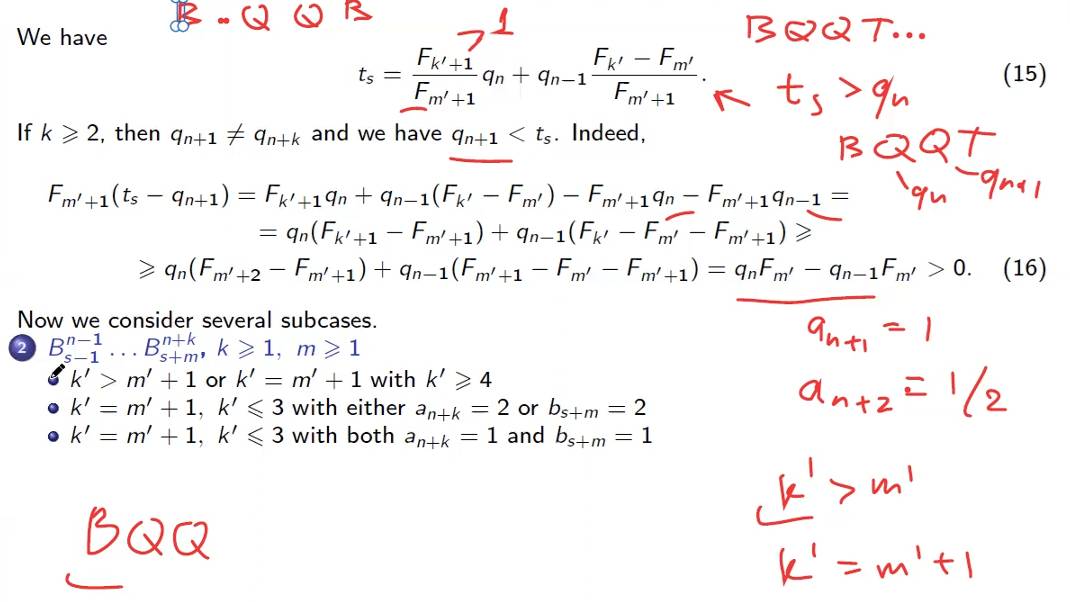 B - Q Q B
We have
t_s = \frac{F_{k'+1}}{F_{m'+1}} q_n + q_{n-1} \frac{F_{k'} - F_{m'}}{F_{m'+1}}. (15)
1
BQQT...
t_s > q_n
If k ⩾ 2, then q_{n+1} ≠ q_{n+k} and we have q_{n+1} < t_s. Indeed,
BQQT
q_n
q_{n+1}
F_{m'+1}(t_s − q_{n+1}) = F_{k'+1}q_n + q_{n−1}(F_{k'} − F_{m'}) − F_{m'+1}q_n − F_{m'+1}q_{n−1} =
= q_n(F_{k'+1} − F_{m'+1}) + q_{n−1}(F_{k'} − F_{m'} − F_{m'+1}) ⩾
⩾ q_n(F_{m'+2} − F_{m'+1}) + q_{n−1}(F_{m'+1} − F_{m'} − F_{m'+1}) = q_nF_{m'} − q_{n−1}F_{m'} > 0. (16)
Now we consider several subcases.
2 B^{n−1}_{s−1} ... B^{n+k}_{s+m}, k ⩾ 1, m ⩾ 1
k' > m' + 1 or k' = m' + 1 with k' ⩾ 4
k' = m' + 1, k' ⩽ 3 with either a_{n+k} = 2 or b_{s+m} = 2
k' = m' + 1, k' ⩽ 3 with both a_{n+k} = 1 and b_{s+m} = 1
a_{n+1} = 1
a_{n+2} = 1/2
k' > m'
k' = m'+1
BQQ